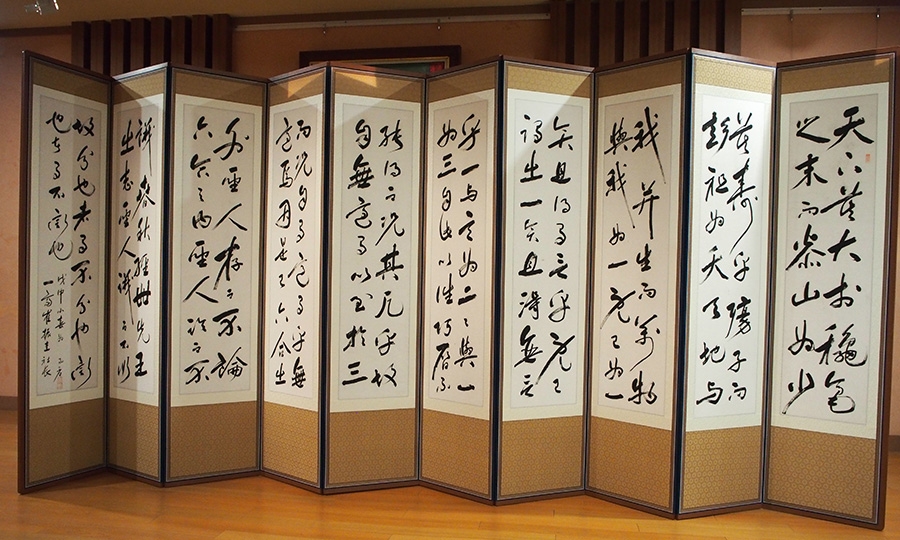 天下莫大於龝毫
之末而泰山為小
莫壽乎殤子而
彭祖為夭天地与
我并生而萬物
與我為一既已為一
矣且得有言乎既已
謂之一矣且得無言
乎一与言為二二與一
為三自此以往巧曆不
能得而況其凡乎故
自無適有以至於三
而況自有適有乎無
適焉因是已六合之
外聖人存而不論
六合之內聖人論而不
議春秋經世先王
之志聖人議而不辯
故分也者有不分也辯
也者有不辯也
戊申小春
一齋崔社長